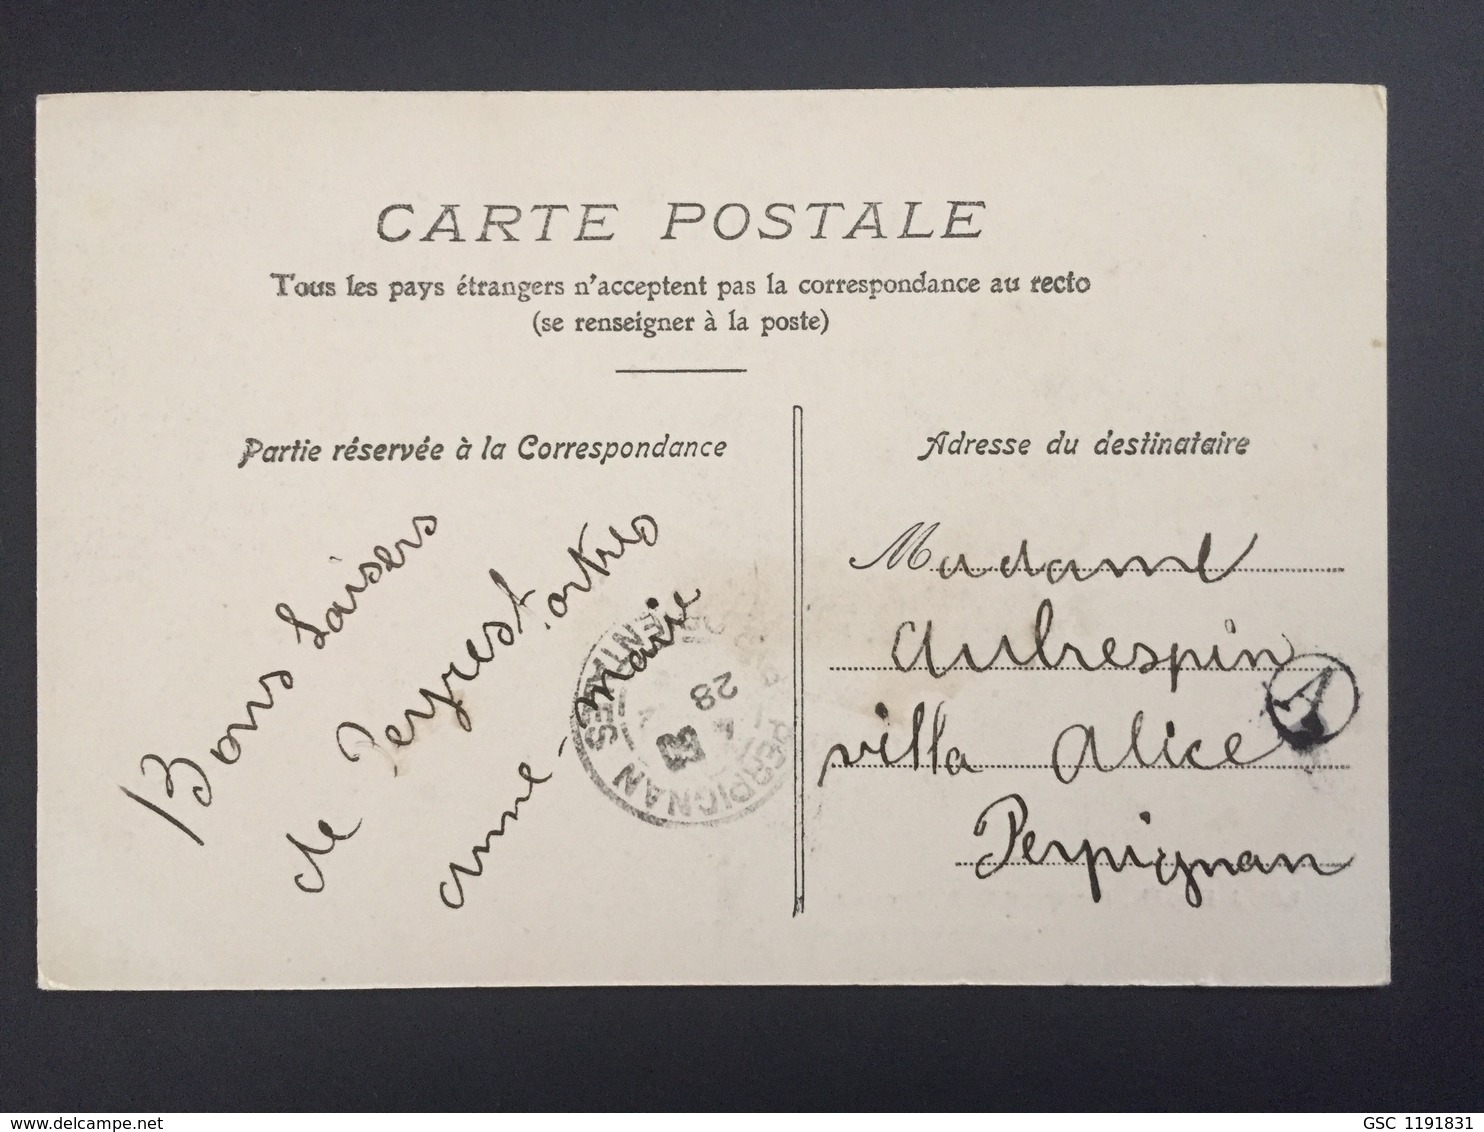 CARTE POSTALE
Tous les pays étrangers n'acceptent pas la correspondance au recto
(se renseigner à la poste)
Partie réservée à la Correspondance
Bons baisers
de Peyrestortes
anné-marie
PERPIGNAN
28
Adresse du destinataire
Madame
Aubrespin
villa Alice
Perpignan
A
GSC 1191831